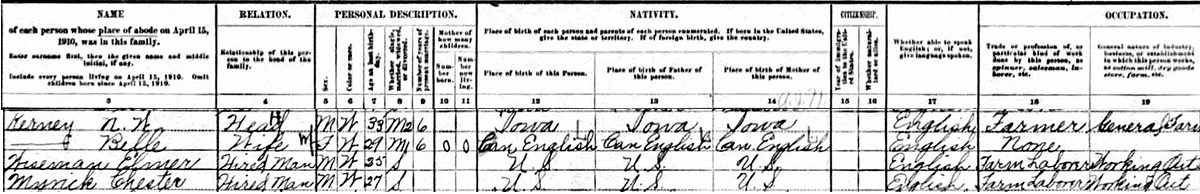 NAME RELATION. PERSONAL DESCRIPTION. NATIVITY. CITIZENSHIP. OCCUPATION.
of each person whose place of abode on April 15, 1910, was in this family.
Enter surname first, then the given name and middle initial, if any.
Include every person living on April 15, 1910. Omit children born since April 15, 1910.
Relationship of this person to the head of the family.
Sex.
Color or race.
Age at last birthday.
Whether single, married, widowed, or divorced.
Number of years of present marriage.
Mother of how many children.
Number born.
Number now living.
Place of birth of each person and parents of each person enumerated. If born in the United States, give the state or territory. If of foreign birth, give the country.
Place of birth of this Person.
Place of birth of Father of this person.
Place of birth of Mother of this person.
Year of immigration to the United States.
Whether naturalized or alien.
Whether able to speak English; or, if not, give language spoken.
Trade or profession of, or particular kind of work done by this person, as spinner, salesman, laborer, etc.
General nature of industry, business, or establishment in which this person works, as cotton mill, dry goods store, farm, etc.
3 4 5 6 7 8 9 10 11 12 13 14 15 16 17 18 19
Kerney N. W Head M W 33 M2 6 Iowa Iowa Iowa English Farmer General Farm
—— Belle Wife F W 29 M1 6 0 0 Can. English Can English Can. English English None
Wiseman Elmer Hired Man M W 35 S U.S U.S. U.S English Farm Laborer Working Out
Chester Hired Man M W 27 S U.S U.S. U.S English Farm Laborer Working Out